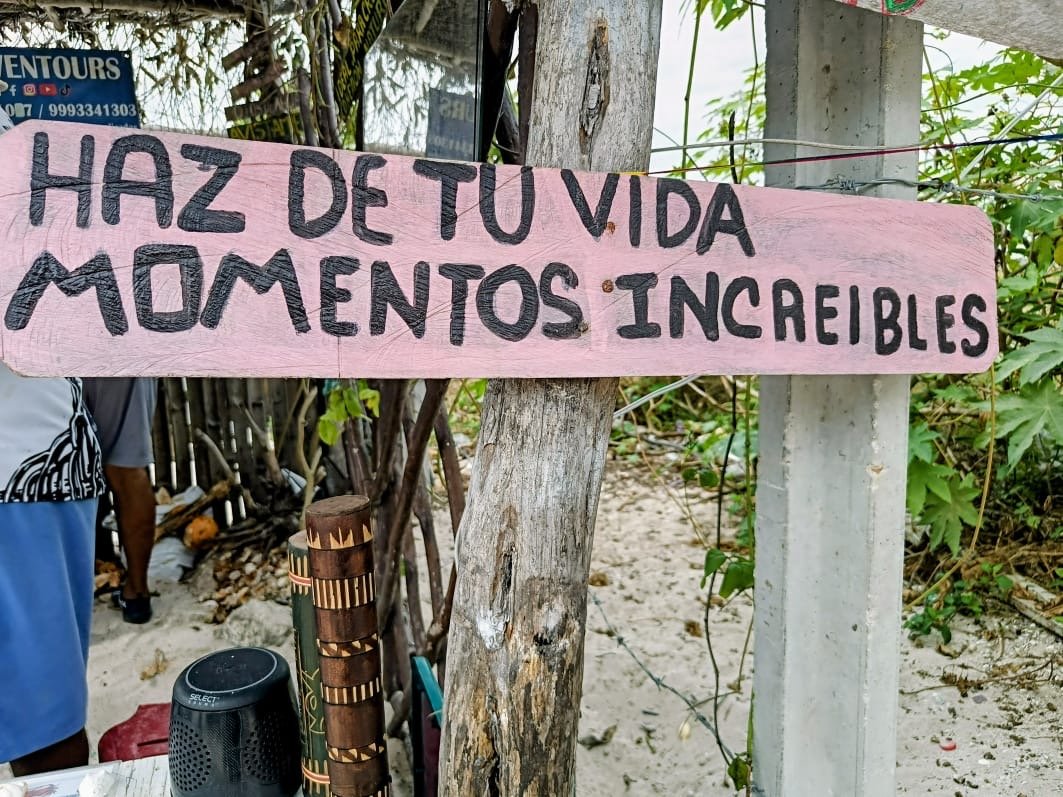 VENTOURS
/ 9993341303
HAZ DE TU VIDA
MOMENTOS INCREIBLES
SELECT